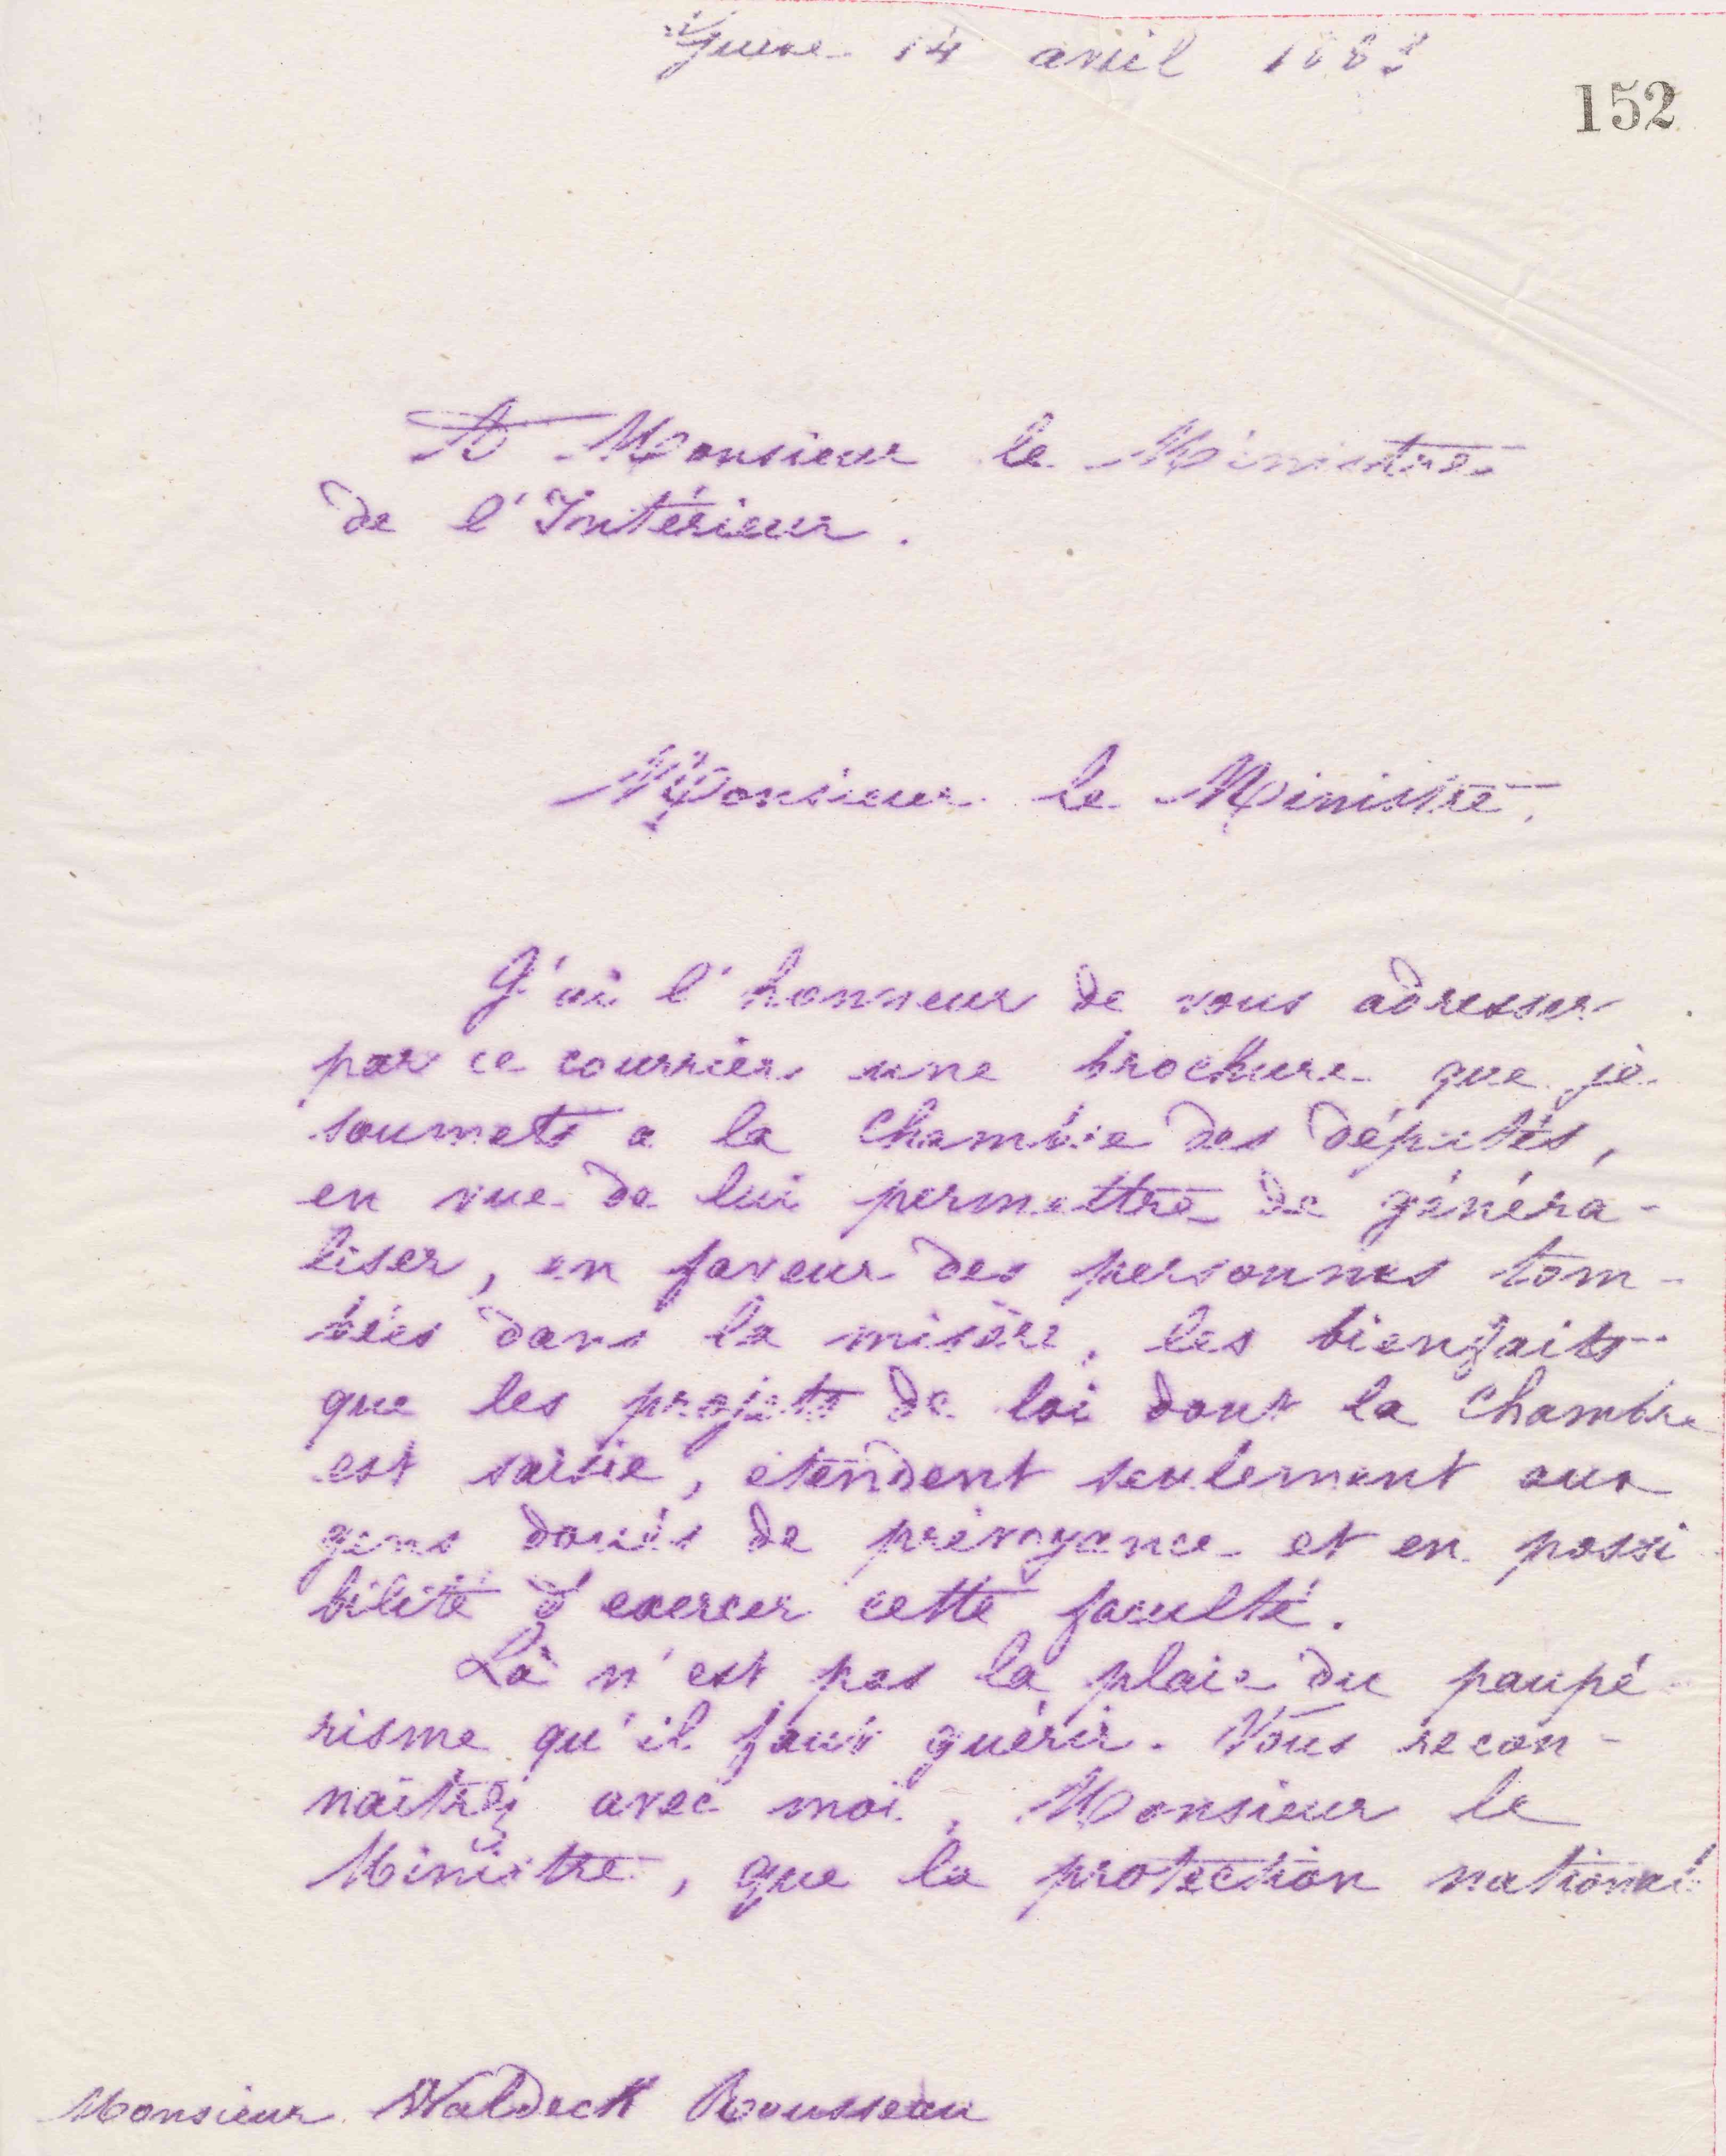 Guise 14 avril 1883
152
A Monsieur le Ministre
de l'Intérieur.
Monsieur le Ministre,
J'ai l'honneur de vous adresser
par ce courrier une brochure que je
soumets a la Chambre des députés,
en vue de lui permettre de généra-
liser, en faveur des personnes tom-
bées dans la misère, les bienfaits
que les projets de loi dont la Chambre
est saisie, étendent seulement aux
gens doués de prévoyance et en possi
bilité d'exercer cette faculté.
Là n'est pas la plaie du paupé
risme qu'il faut guérir. Vous recon-
naîtrez avec moi, Monsieur le
Ministre, que la protection national
Monsieur Waldeck Rousseau